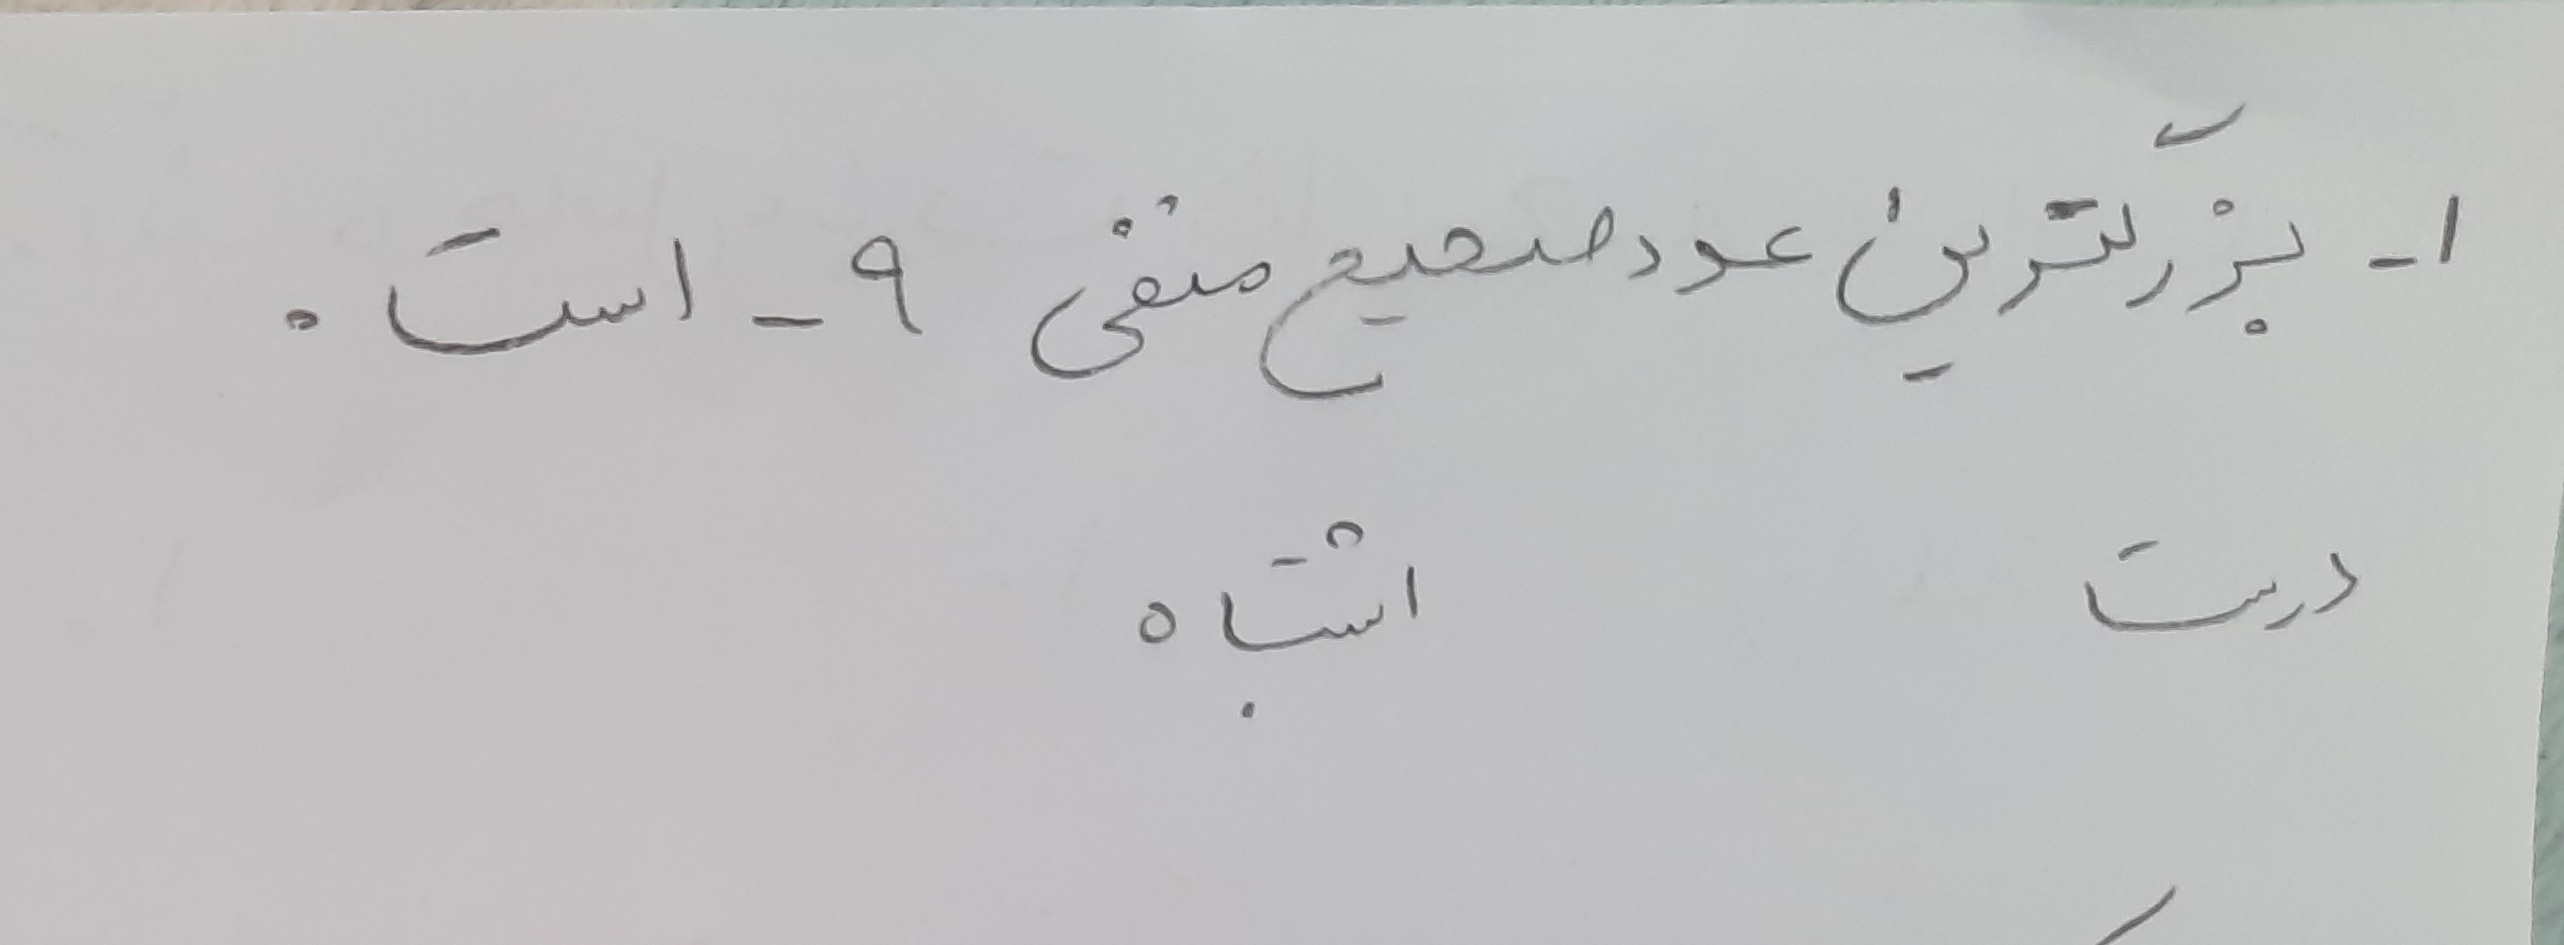 ۱- بزرگترین عدد صحیح منفی ۹- است.
درست اشتباه